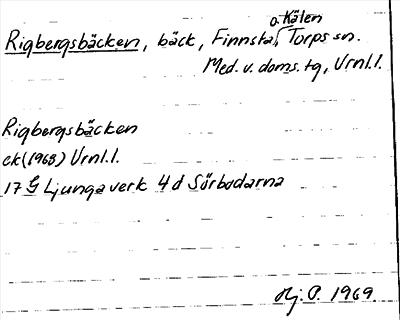 Rigbergsbäcken, bäck, Finnsta, o. Kälen Torps sn.
Med. v. doms. tg, Vrnl.l.
Rigbergsbäcken
ek (1968) Vrnl.l.
17 G Ljungaverk 4 d Sörbodarna
Hj. P. 1969